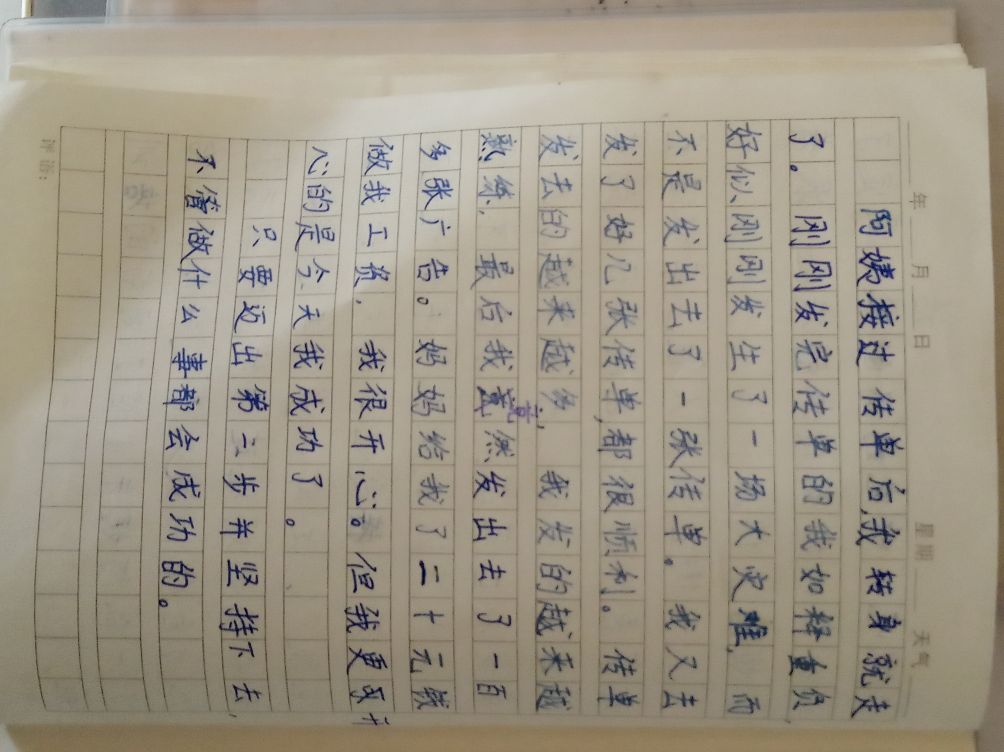 年 月 日 星期 天气
阿姨接过传单后,我转身就走
了。刚刚发完传单的我如释重负,
好似刚刚发生了一场大灾难,而
不是发出去了一张传单。我又去
发了好几张传单,都很顺利。传单
发去的越来越多,我发的越来越
熟练,最后我竟然发出去了一百
多张广告。妈妈给我了二十元钱
做我工资,我很开心。但我更开
心的是今天我成功了。
只要迈出第一步并坚持下去,
不管做什么事都会成功的。
评语: